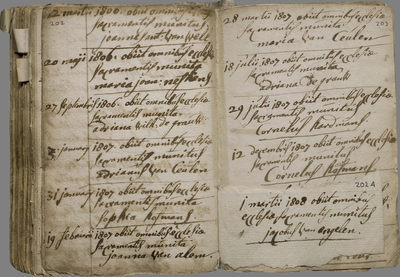 12 martii 1806 obiit omnibus
202
sacramentis munitus
joannes van
20 maji 1806. obiit omnibus ecclesiæ
sacramentis munita
maria
27 septembris 1806. obiit omnibus ecclesiæ
sacramentis munita
adriana wilh. de frankt.
3. january 1807. obiit omnibus ecclesiæ
sacramentis munitus
adrianus van Ceulen
31 january 1807 obiit omnibus ecclesiæ
sacramentis munita
Sophia Hofmans
19 februarii 1807 obiit omnibus ecclesiæ
sacramentis munita
Joanna van alem.
28 martii 1807 obiit omnibus ecclesiæ
203
sacramentis munita
maria van Ceulen
18 julii 1807. obiit omnibus ecclesiæ
sacramentis munita
adriana de frankt
29 julii 1807 obiit omnibus ecclesiæ
sacramentis munitus
Cornelius Hardmans.
12 decembris 1807 obiit omnibus ecclesiæ
sacramentis munitus
Cornelius Hofmans
202A
1 martii 1808 obiit omnibus
ecclesiæ sacramentis munitus
jacobus van